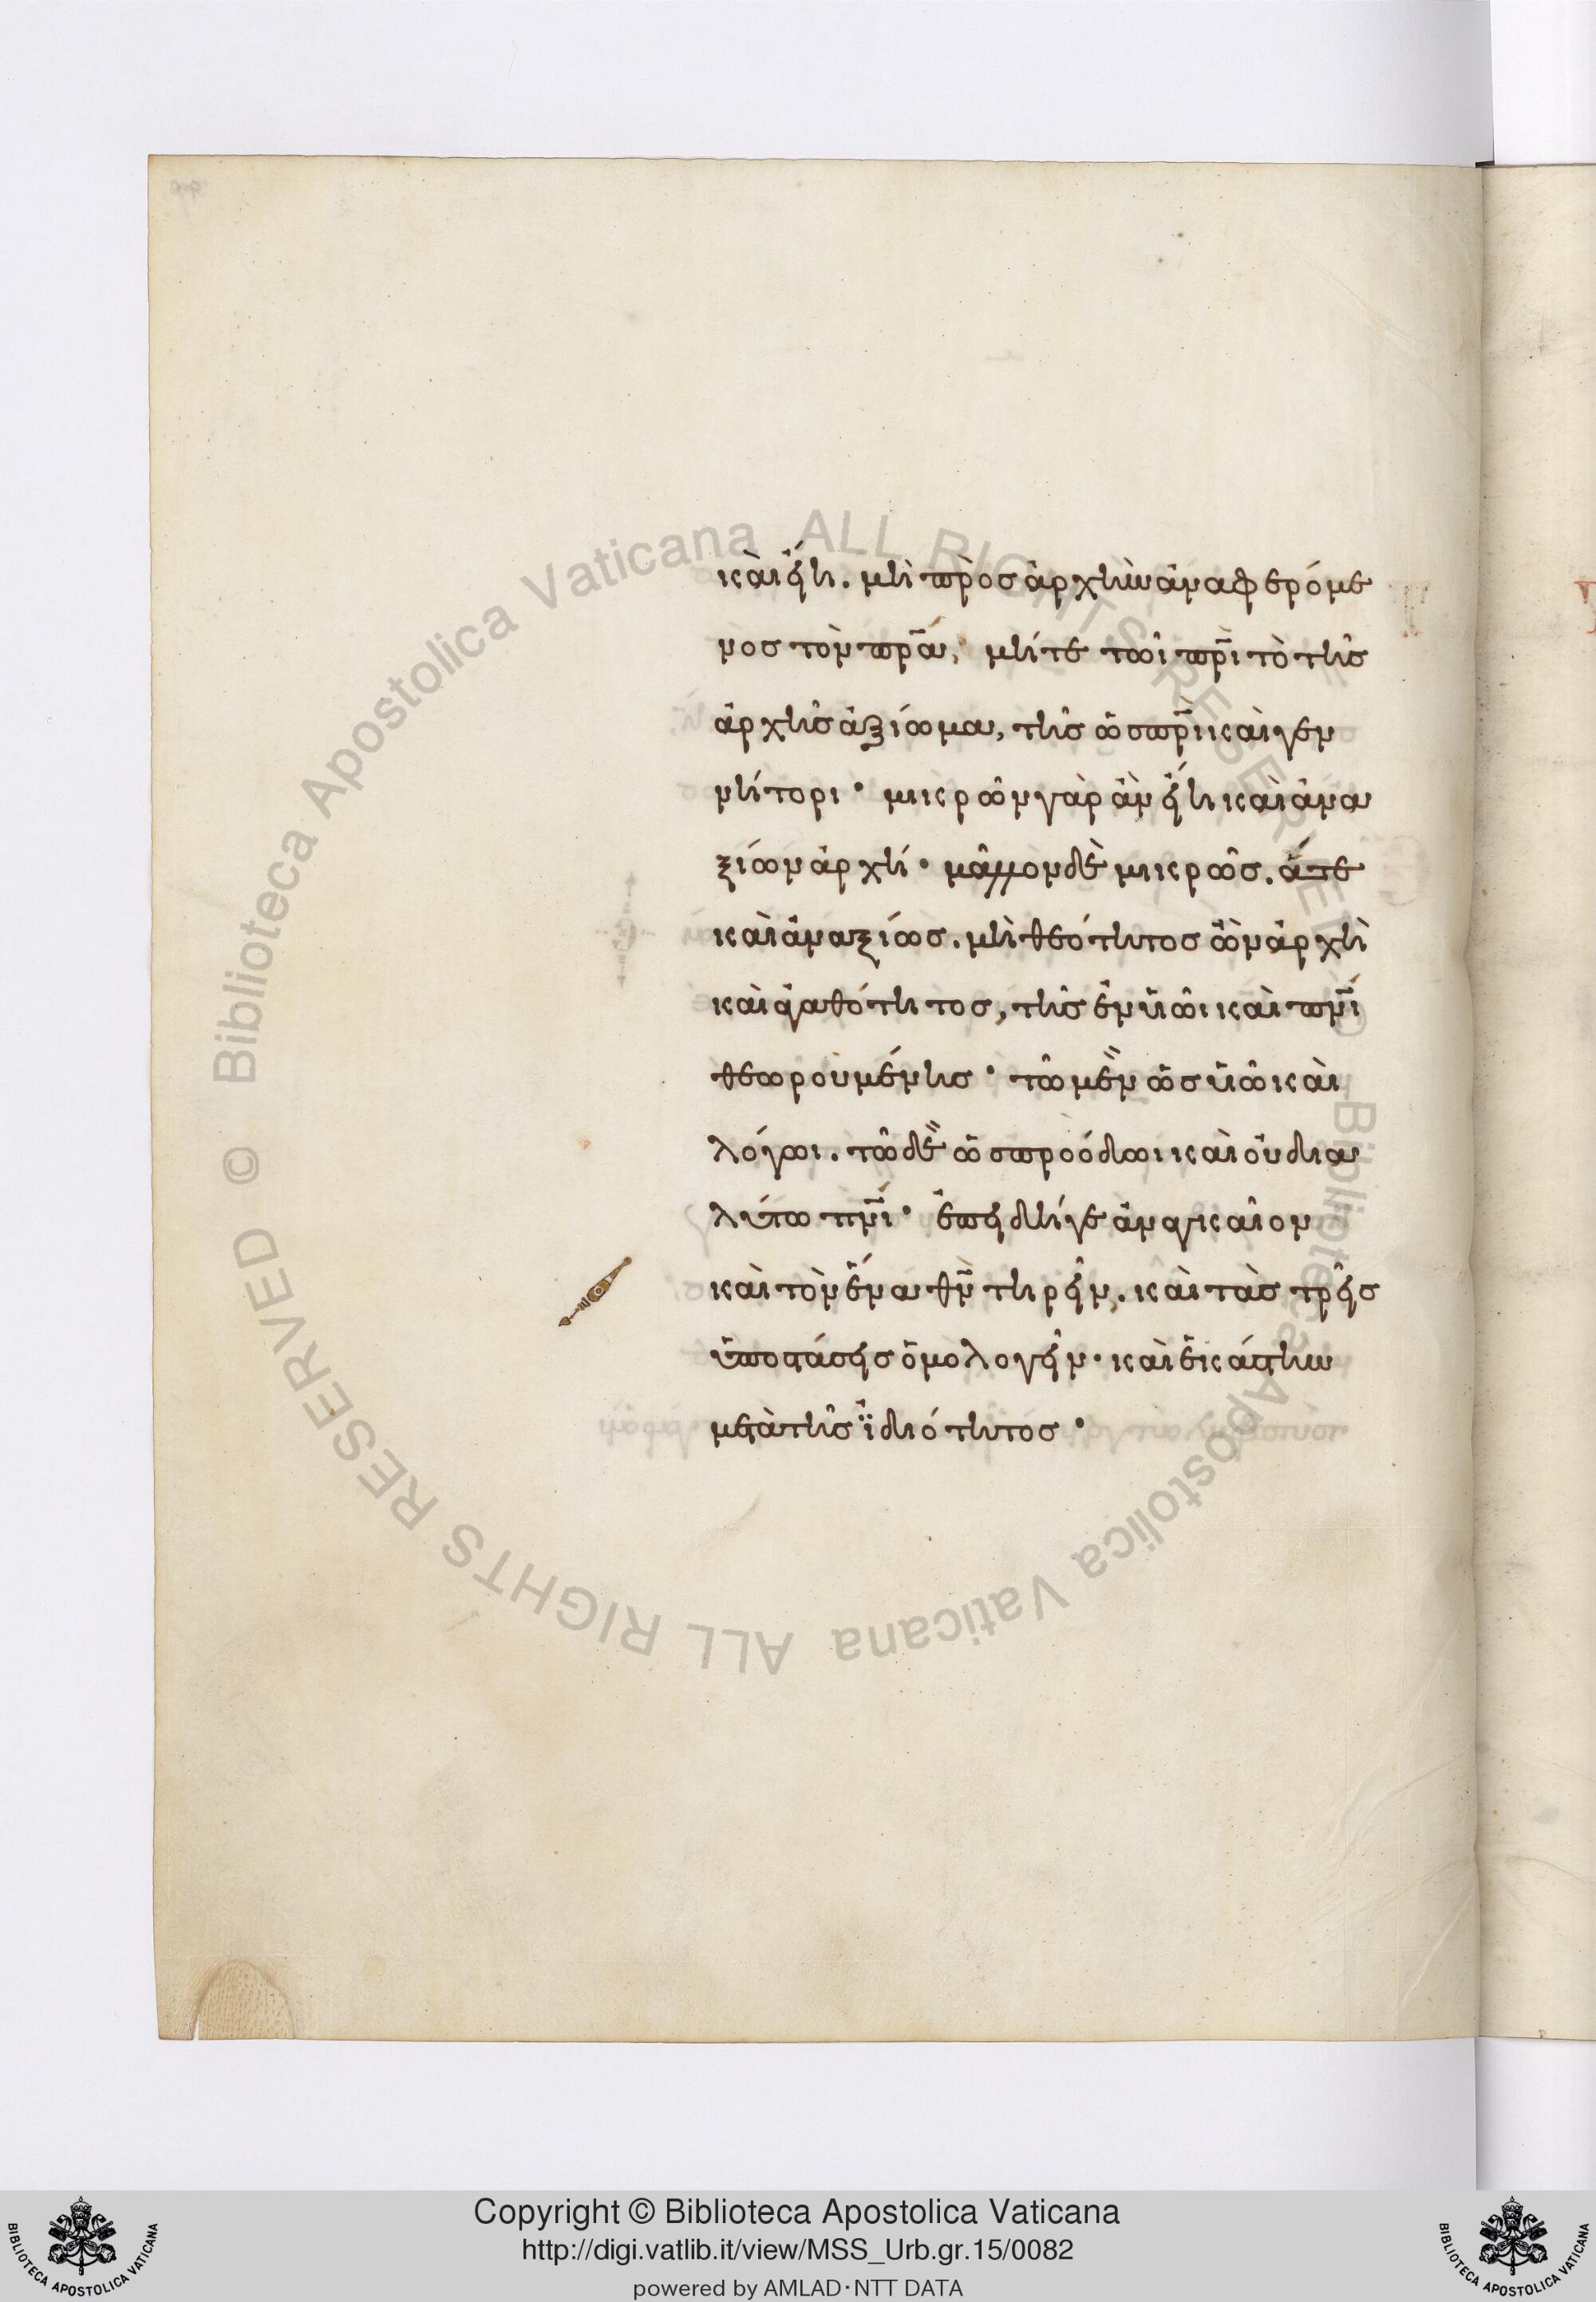 καὶ εἴη. μὴ πρὸς ἀρχὴν ἀναφερόμε
νος τὸν πρ̅α, μήτε τῶι πρ̅ι τὸ τῆς
ἀρχῆς ἀξίωμα, τῆς ὡς πρ̅ι καὶ γεν
νήτορι· μικρῶν γὰρ ἂν εἴη καὶ ἀνα
ξίων ἀρχή· μᾶλλον δὲ μικρῶς. ἅτε
καὶ ἀναξίως. μὴ θεότητος ὢν ἀρχὴ
καὶ ἀγαθότητος, τῆς ἐν υἱῶι καὶ πν̅ι
θεωρουμένης· τῶ μὲν ὡς υἱῶ καὶ
λόγωι. τῶ δὲ ὡς προόδωι καὶ οὐ δια
λύτω πν̅ι· ἐπειδήγε ἀναγκαῖον
καὶ τὸν ἕνα θν̅ τηρεῖν. καὶ τὰς τρεῖς
ὑποστάσεις ὁμολογεῖν· καὶ ἑκάστην
μετὰ τῆς ἰδιότητος·
Copyright © Biblioteca Apostolica Vaticana
http://digi.vatlib.it/view/MSS_Urb.gr.15/0082
powered by AMLAD·NTT DATA
BIBLIOTECA APOSTOLICA VATICANA
BIBLIOTECA APOSTOLICA VATICANA
© Biblioteca Apostolica Vaticana ALL RIGHTS RESERVED
© Biblioteca Apostolica Vaticana ALL RIGHTS RESERVED